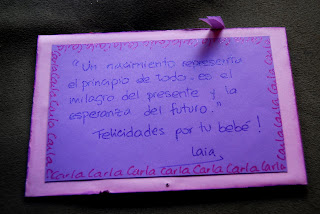 Carla Carla Carla Carla Carla Carla
"Un nacimiento representa
el principio de todo, es el
milagro del presente y la
esperanza del futuro."
Felicidades por tu bebé!
Laia
Carla Carla Carla Carla Carla Carla Carla